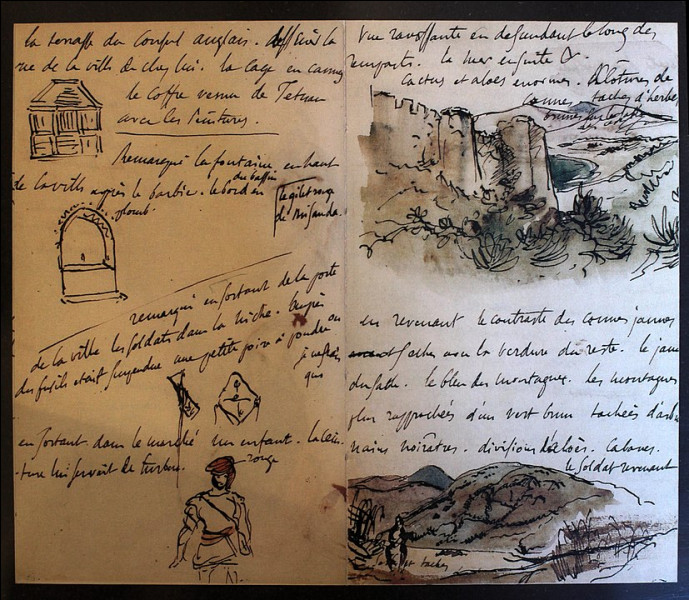 la terrasse du Consul anglais. sur la
vue de la ville de chez lui. la cage en cannes
le coffre venu de Tetuan
avec les peintures.
Remarqué la fontaine en haut
de la ville après le barbier. le bord en
du bassin
plomb.
le gilet rouge
de
remarqué en sortant de la porte
de la ville les soldats dans la niche. auprès
des fusils était suspendue une petite poire à poudre ou
je ne sais
quoi
en sortant dans le marché un enfant. la cein
-ture lui servait de turban.
rouge
Vue ravissante en descendant le long des
remparts. la mer ensuite &.
Cactus et aloès énormes. clôture de
cannes taches d'herbes
brunes sur le sable
en revenant le contraste des cannes jaunes
sèches avec la verdure du reste. le jaune
du sable. le bleu des montagnes. les montagnes
plus rapprochées d'un vert brun tachées d'arbres
nains noirâtres. divisions d'aloès. Cabanes.
le soldat revenant
et taches